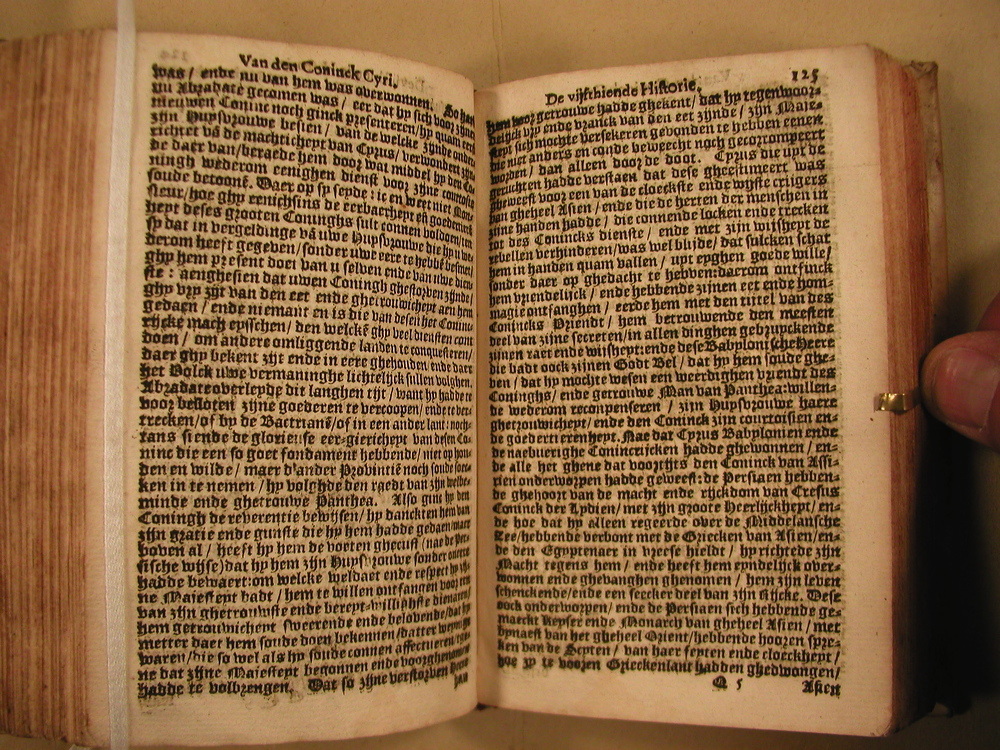 Van den Coninck Cyri.
was / ende nu van hem was overwonnen. So haest
nu Abradate gecomen was / eer dat hy sich voor zijne
nieuwen Coninc noch ginck presenteren / hy quam eerst
zijn Huysvrouwe besien / van de welcke zijnde onder
richtet vā de machticheyt van Cyrus / verwondert zijn
de daer van / beraede hem door wat middel hy den Co-
ningh wederom eenighen dienst voor zijne courtosie
soude betoonē. Daer op sy seyde: ic en weet niet Mon-
sieur / hoe ghy eenichsins de eerbaerheyt en goedertie
heyt deses grooten Coninghs sult connen voldoen / ten
sy dat in vergeldinge vā uwe Huysvrouwe die hy u we-
derom heeft gegeven / sonder uwe eere te hebbē besmet /
ghy hem present doet van u selven ende van uwe dien-
ste: aenghesien dat uwen Coningh ghestorven zijnde /
ghy vry zijt van den eet ende ghetrouwicheyt aen hem
gedaen / ende niemant en is die van desen het Coninc-
rijcke mach eysschen / den welckē ghy veel diensten cont
doen / om andere omliggende landen te conquesteren /
daer ghy bekent zijt ende in eere ghehouden ende daer
het Volck uwe vermaninghe lichtelijck sullen volghen.
Abradate overleyde dit langhen tijt / want hy hadde te
voor besloten zijne goederen te vercoopen / ende te ver-
trecken / of by de Bactrianē / of in een ander lant: noch-
tans siende de glorieuse eer-gierichept van desen Co-
ninc die een so goet fondament hebbende / niet op hou-
den en wilde / maer d'ander Provintiē noch soude soec-
ken in te nemen / hy volghde den raedt van zijn welbe-
minde ende ghetrouwe Panthea. Also ginc hy den
Coningh de reverentie bewijsen / hy danckten hem van
zijn gratie ende gunste die hy hem hadde gedaen / maer
boven al / heeft hy hem de voeten ghecust (nae de Per-
sische wijse) dat hy hem zijn Huysvrouwe sonder onteere
hadde bewaert: om welcke weldaet ende respect hy zij-
ne Majesteyt badt / hem te willen ontfangen voor een
van zijn ghetrouwste ende bereyt-willighste dienaren /
hem getrouwicheyt sweerende ende belovende / dat hy
metter daet hem soude doen bekennen / datter weynigh
waren / die so wel als hy soude connen affectueren / 
ne dat zijne Majesteyt begonnen ende voorghenomen
hadde te volbrengen. Dat so zijne verstorven Heere
han
De vijfthiende Historie. 125
hem voor getrouwe hadde ghekent / dat hy tegenwoor-
delijck vry ende vranck van den eet zijnde / zijn Maje-
steyt sich mochte versekeren gevonden te hebben eenen
die niet anders en conde beweecht noch gecorrompeert
worden / dan alleen door de doot. Cyrus die uyt de
geruchten hadde verstaen dat dese gheestimeert was
geweest voor een van de cloeckste ende wijste crijgers
van gheheel Asien / ende die de herten der menschen in
zijne handen hadde / die connende locken ende trecken
tot des Conincks dienste / ende met zijn wijsheyt de
rebellen verhinderen / was wel blijde / dat sulcken schat
hem in handen quam vallen / uyt eyghen goede wille /
sonder daer op ghedacht te hebben: daerom ontfinck
hem vriendelijck / ende hebbende zijnen eet ende hom-
magie ontfanghen / eerde hem met den tittel van des
Conincks Vriendt / hem betrouwende den meesten
deel van zijne secreten / in allen dinghen gebruyckende
zijnen raet ende wijsheyt: ende dese Babylonische Heere
die badt oock zijnen Godt Bel / dat hy hem soude ghe-
ven / dat hy mochte wesen een weerdighen vriendt des
Coninghs / ende den getrouwen Man van Panthea: willen-
de wederom recompenseren / zijn Huysvrouwe haere
ghetrouwicheyt / ende den Coninck zijn courtoisien en-
de goedertierenheyt. Nae dat Cyrus Babylonien ende
de naebuerighe Conincrijcken hadde ghewonnen / en-
de alle het ghene dat voortijts den Coninck van Assi-
rien onderworpen hadde geweest: de Persiaen hebben-
de ghehoort van de macht ende rijckdom van Cresus
Coninck der Lydien / met zijn groote Heerlijckheyt / en-
de hoe dat hy alleen regeerde over de Middelansche
Zee / hebbende verbont met de Griecken van Asien / en-
de den Egyptenaer in vreese hieldt / hy richtede zijn
Macht tegens hem / ende heeft hem eyndelijck over-
wonnen ende ghevanghen ghenomen / hem zijn leven
schenckende / ende een seecker deel van zijn Rijcke. Dese
oock onderworpen / ende de Persiaen sich hebbende ge-
maeckt Keyser ende Monarch van gheheel Asien / met
bynaest van het gheheel Orient / hebbende hooren spre-
ken van de Scyten / van haer setten ende cloeckheyt /
hoe sy te vooren Grieckenlant hadden ghedwongen /
Q 5 Asien